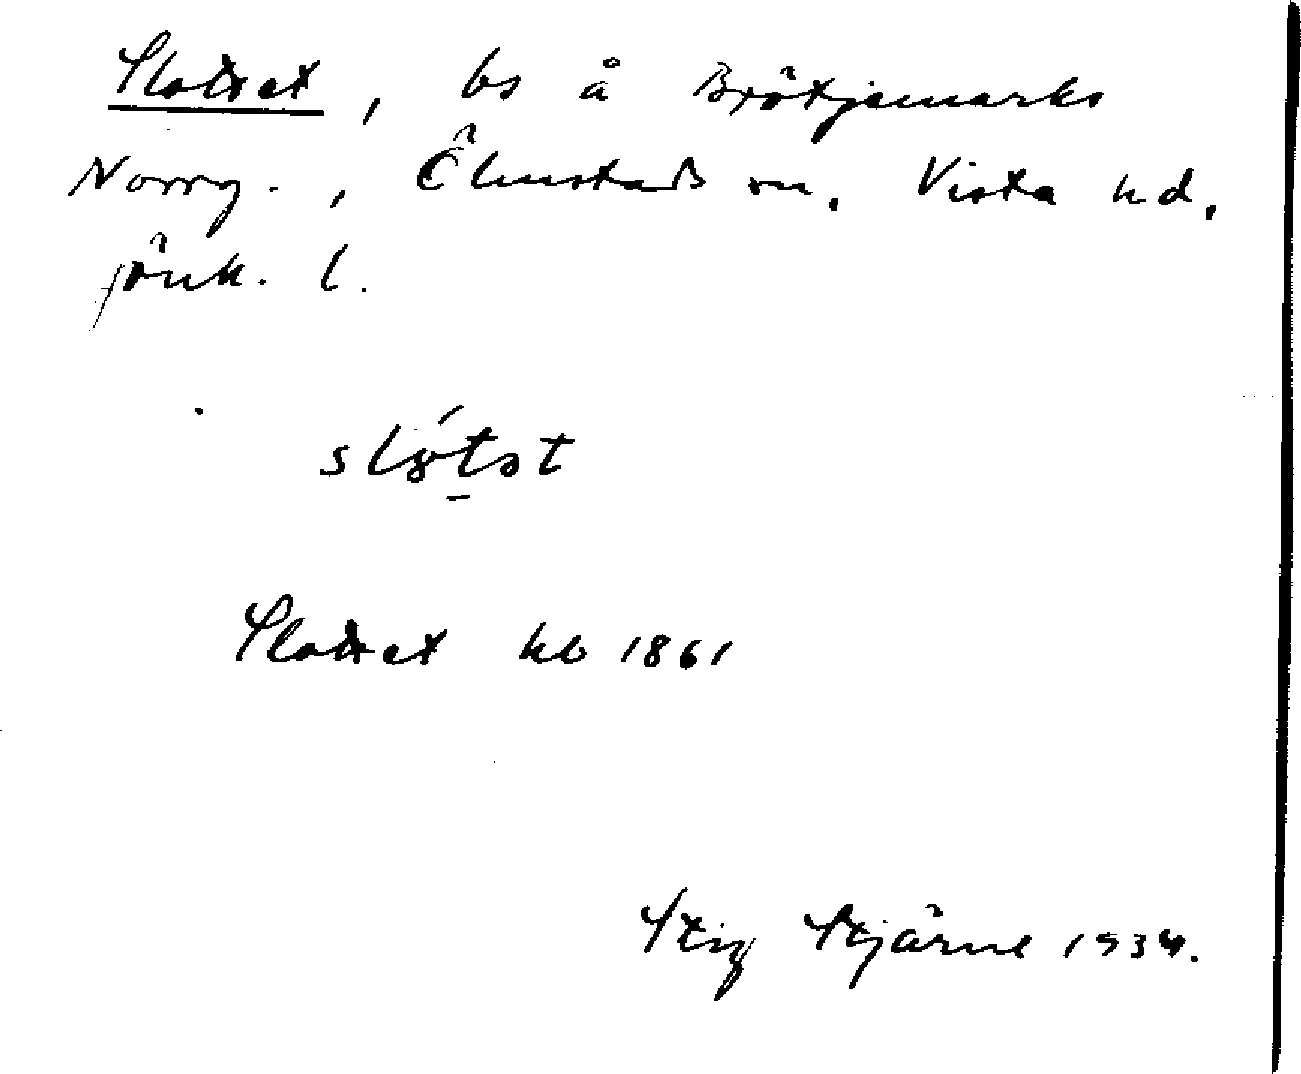 Slottet, bs å Brötjemarks
Norrg., Ölmstads sn, Vista hd,
Jönk. l.
slǫ́tət
Slottet hb 1861
Stig Stjärne 1934.